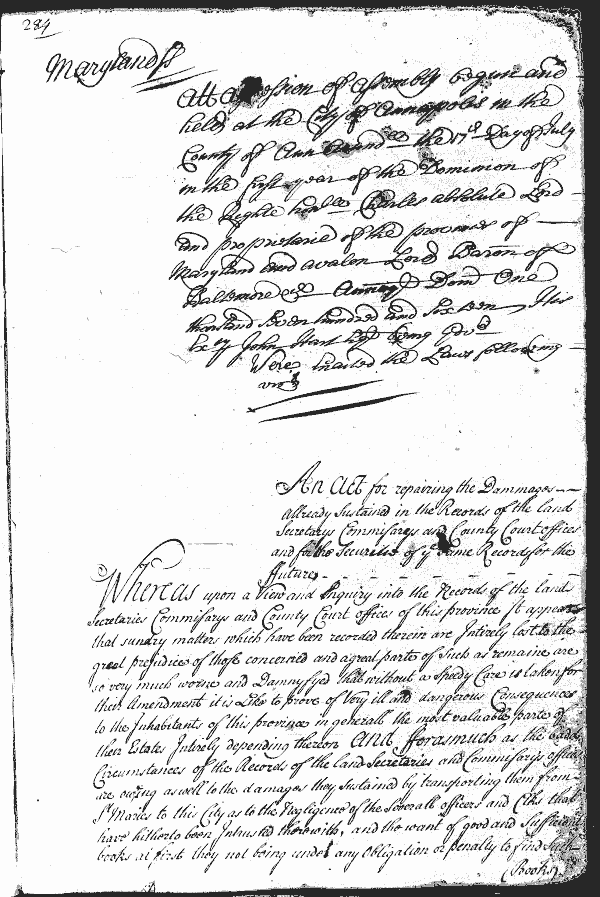 284
Maryland ss
Att a Session of Assembly begun and
held at the City of Annapolis in the
County of Ann Arundll the 17th Day of July
in the first year of the Dominion of
the Righte honble Charles absolute Lord
and proprietarie of the provinces of
Maryland and avalon Lord Baron of
Baltemore &ca Annoq Dom One
thousand Seven hundred and Sixteen, His
Exty John Hart Esqr being Govr
Were Enacted the Laws following
vizt
An Act for repairing the Dammages
allready Sustained in the Records of the land
Secretarys Commisarys and County Court offices
and for the Securitie of ye same Records for the
future,
Whereas upon a View and Enquiry into the Records of the land
Secretaries Commisarys and County Court offices of this province It appears
that sundry matters which have been recorded therein are Intirely lost to the
great prejudice of those concerned and a great parte of Such as remaine are
so very much worne and Damnyfyed that without a Speedy Care is taken for
their Amendment it is Like to prove of Very ill and dangerous Consequences
to the Inhabitants of this province in generall the most valuable parte of
their Estates Intirely depending thereon And fforasmuch as the badd
Circumstances of the Records of the land Secretaries and Commisarys offices
are owing as well to the damages they sustained by transporting them from
St Maries to this City as to the Negligence of the Severall officers and Clks that
have hitherto been Intrusted therewith, and the want of good and Sufficient
books at first they not being under any Obligation or penalty to find Such
Books